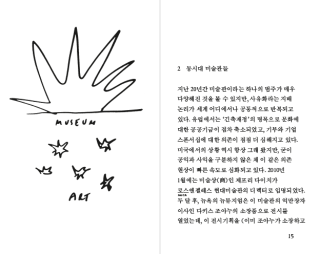 MUSEUM
ART
2 동시대 미술관들
지난 20년간 미술관이라는 하나의 범주가 매우
다양해진 것을 볼 수 있지만, 사유화라는 지배
논리가 세계 어디에서나 공통적으로 반복되고
있다. 유럽에서는 '긴축재정'의 명목으로 문화에
대한 공공기금이 점차 축소되었고, 기부와 기업
스폰서십에 대한 의존이 점점 더 심해지고 있다.
미국에서의 상황 역시 항상 그래 왔지만, 굳이
공식과 사익을 구분하지 않은 채 이 같은 의존
현상이 빠른 속도로 심화되고 있다. 2010년
1월에는 미술상(商)인 제프리 다이치가
로스앤젤레스 현대미술관의 디렉터로 임명되었다.
두 달 후, 뉴욕의 뉴뮤지엄은 이 미술관의 억만장자
이사인 다키스 조아누의 소장품으로 전시를
열었는데, 이 전시기획을 (이미 조아누가 소장하고
15